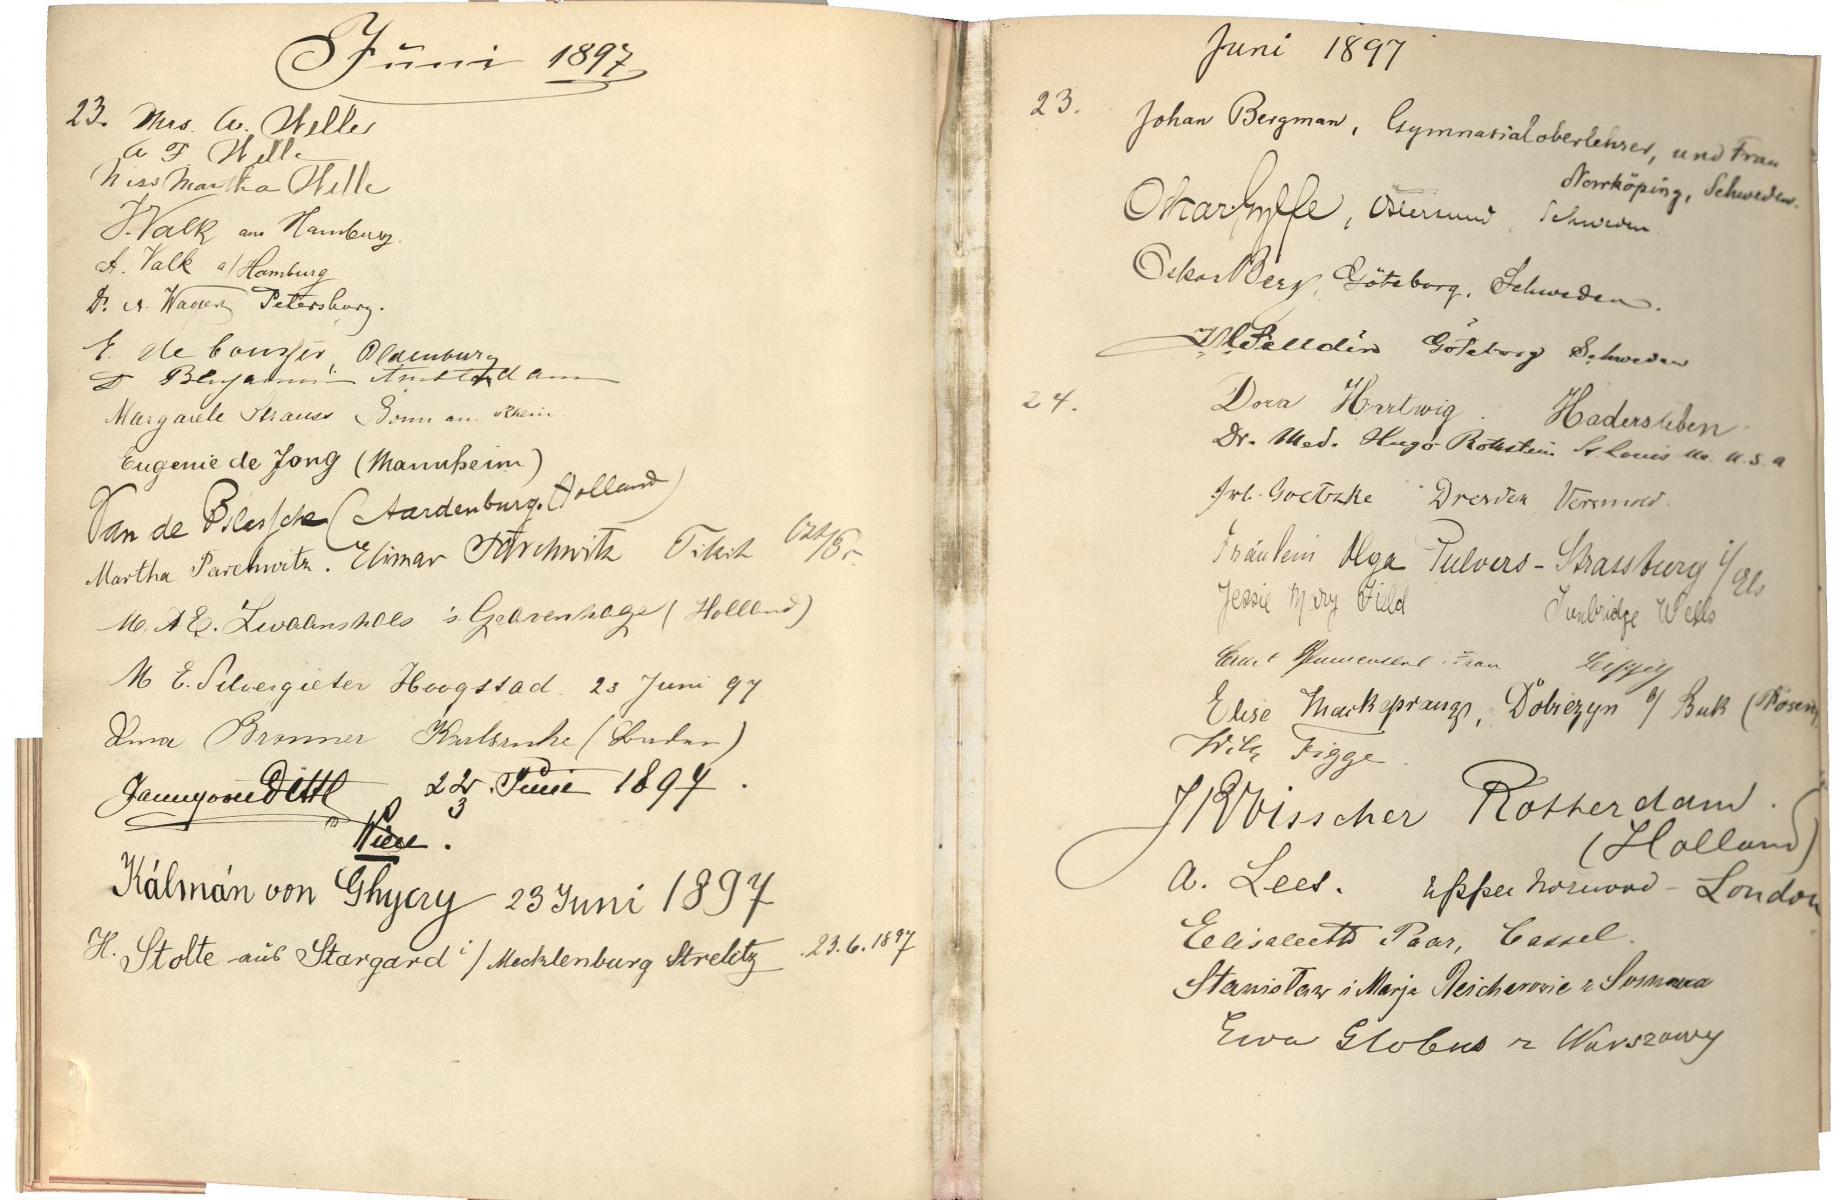 Juni 1897
23. Mrs. A. Weller
A F Welle
Miss Martha Welle
J. Valk aus Hamburg.
A. Valk a/Hamburg
Dr. A. Wagner Petersburg.
E. de Cousser, Oldenburg
Benjamin Amsterdam
Margarete Strauss Bonn am Rhein.
Eugenie de Jong (Mannheim)
Van de (Aardenburg. Holland)
Martha Parchwitz. Elimar Parchwitz Tilsit Ost/Pr.
M. A E. Zwaanshals 's Gravenhage (Holland)
M E. Silvergieter Hoogstad. 23 Juni 97
Bronner Karlsruhe (Baden)
Dittl 23. Juni 1897.
Wien.
Kálmán von Ghyczy 23 Juni 1897
H. Stolte aus Stargard i/Mecklenburg Strelitz 23.6.1897
Juni 1897
23.
Johan Bergman, Gymnasialoberlehrer, und Frau
Norrköping, Schweden.
Oskar Gylfe, Östersund Schweden
Oskar Berg, Göteborg, Schweden.
Göteborg Schweden
24. Dora Hartwig. Hadersleben.
Dr. Med. Hugo Rothstein St. Louis Mo. U.S.A
Goetzke Dresden
Fräulein Olga Pulvers - Strassburg i/Els
Jessie Mary Field Tunbridge Wells
Frau Leipzig
Elise Mackeprang, Dobiezyn b/ Buk (Posen)
Wilh Figge.
J R Visscher Rotterdam.
(Holland)
A. Lees. Upper Norwood - London
Elisabeth Paar, Cassel.
Stanisław i Marja Reicherowie z Sosnowca
Ewa Globus z Warszawy